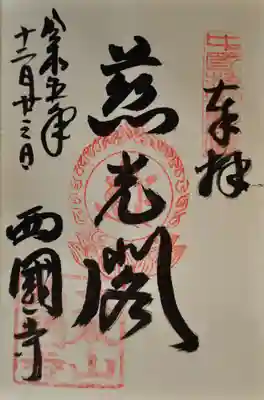 奉拝
慈光閣
令和五年
十二月廿三日
西國寺